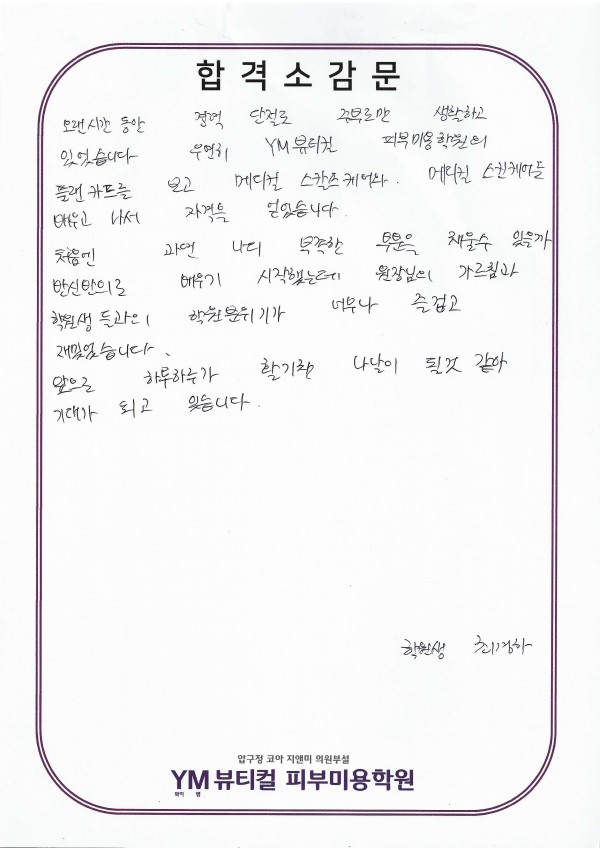 합격소감문
오랜시간 동안 경력 단절로 공부로만 생활하고
있었습니다 우연히 YM뷰티컬 피부미용학원의
플랜카드를 보고 메디컬 스칼프케어와. 메디컬 스킨케어를
배우고 나서 자격을 얻었습니다.
처음엔 과연 나의 부족한 부분을 채울수 있을까
반신반의로 배우기 시작했는데 원장님의 가르침과
학원생들과의 학원분위기가 너무나 즐겁고
재밌었습니다.
앞으로 하루하루가 활기찬 나날이 될것 같아
기대가 되고 있습니다.
학원생 최경하
압구정 코아 지앤미 의원부설
YM뷰티컬 피부미용학원
와이 엠